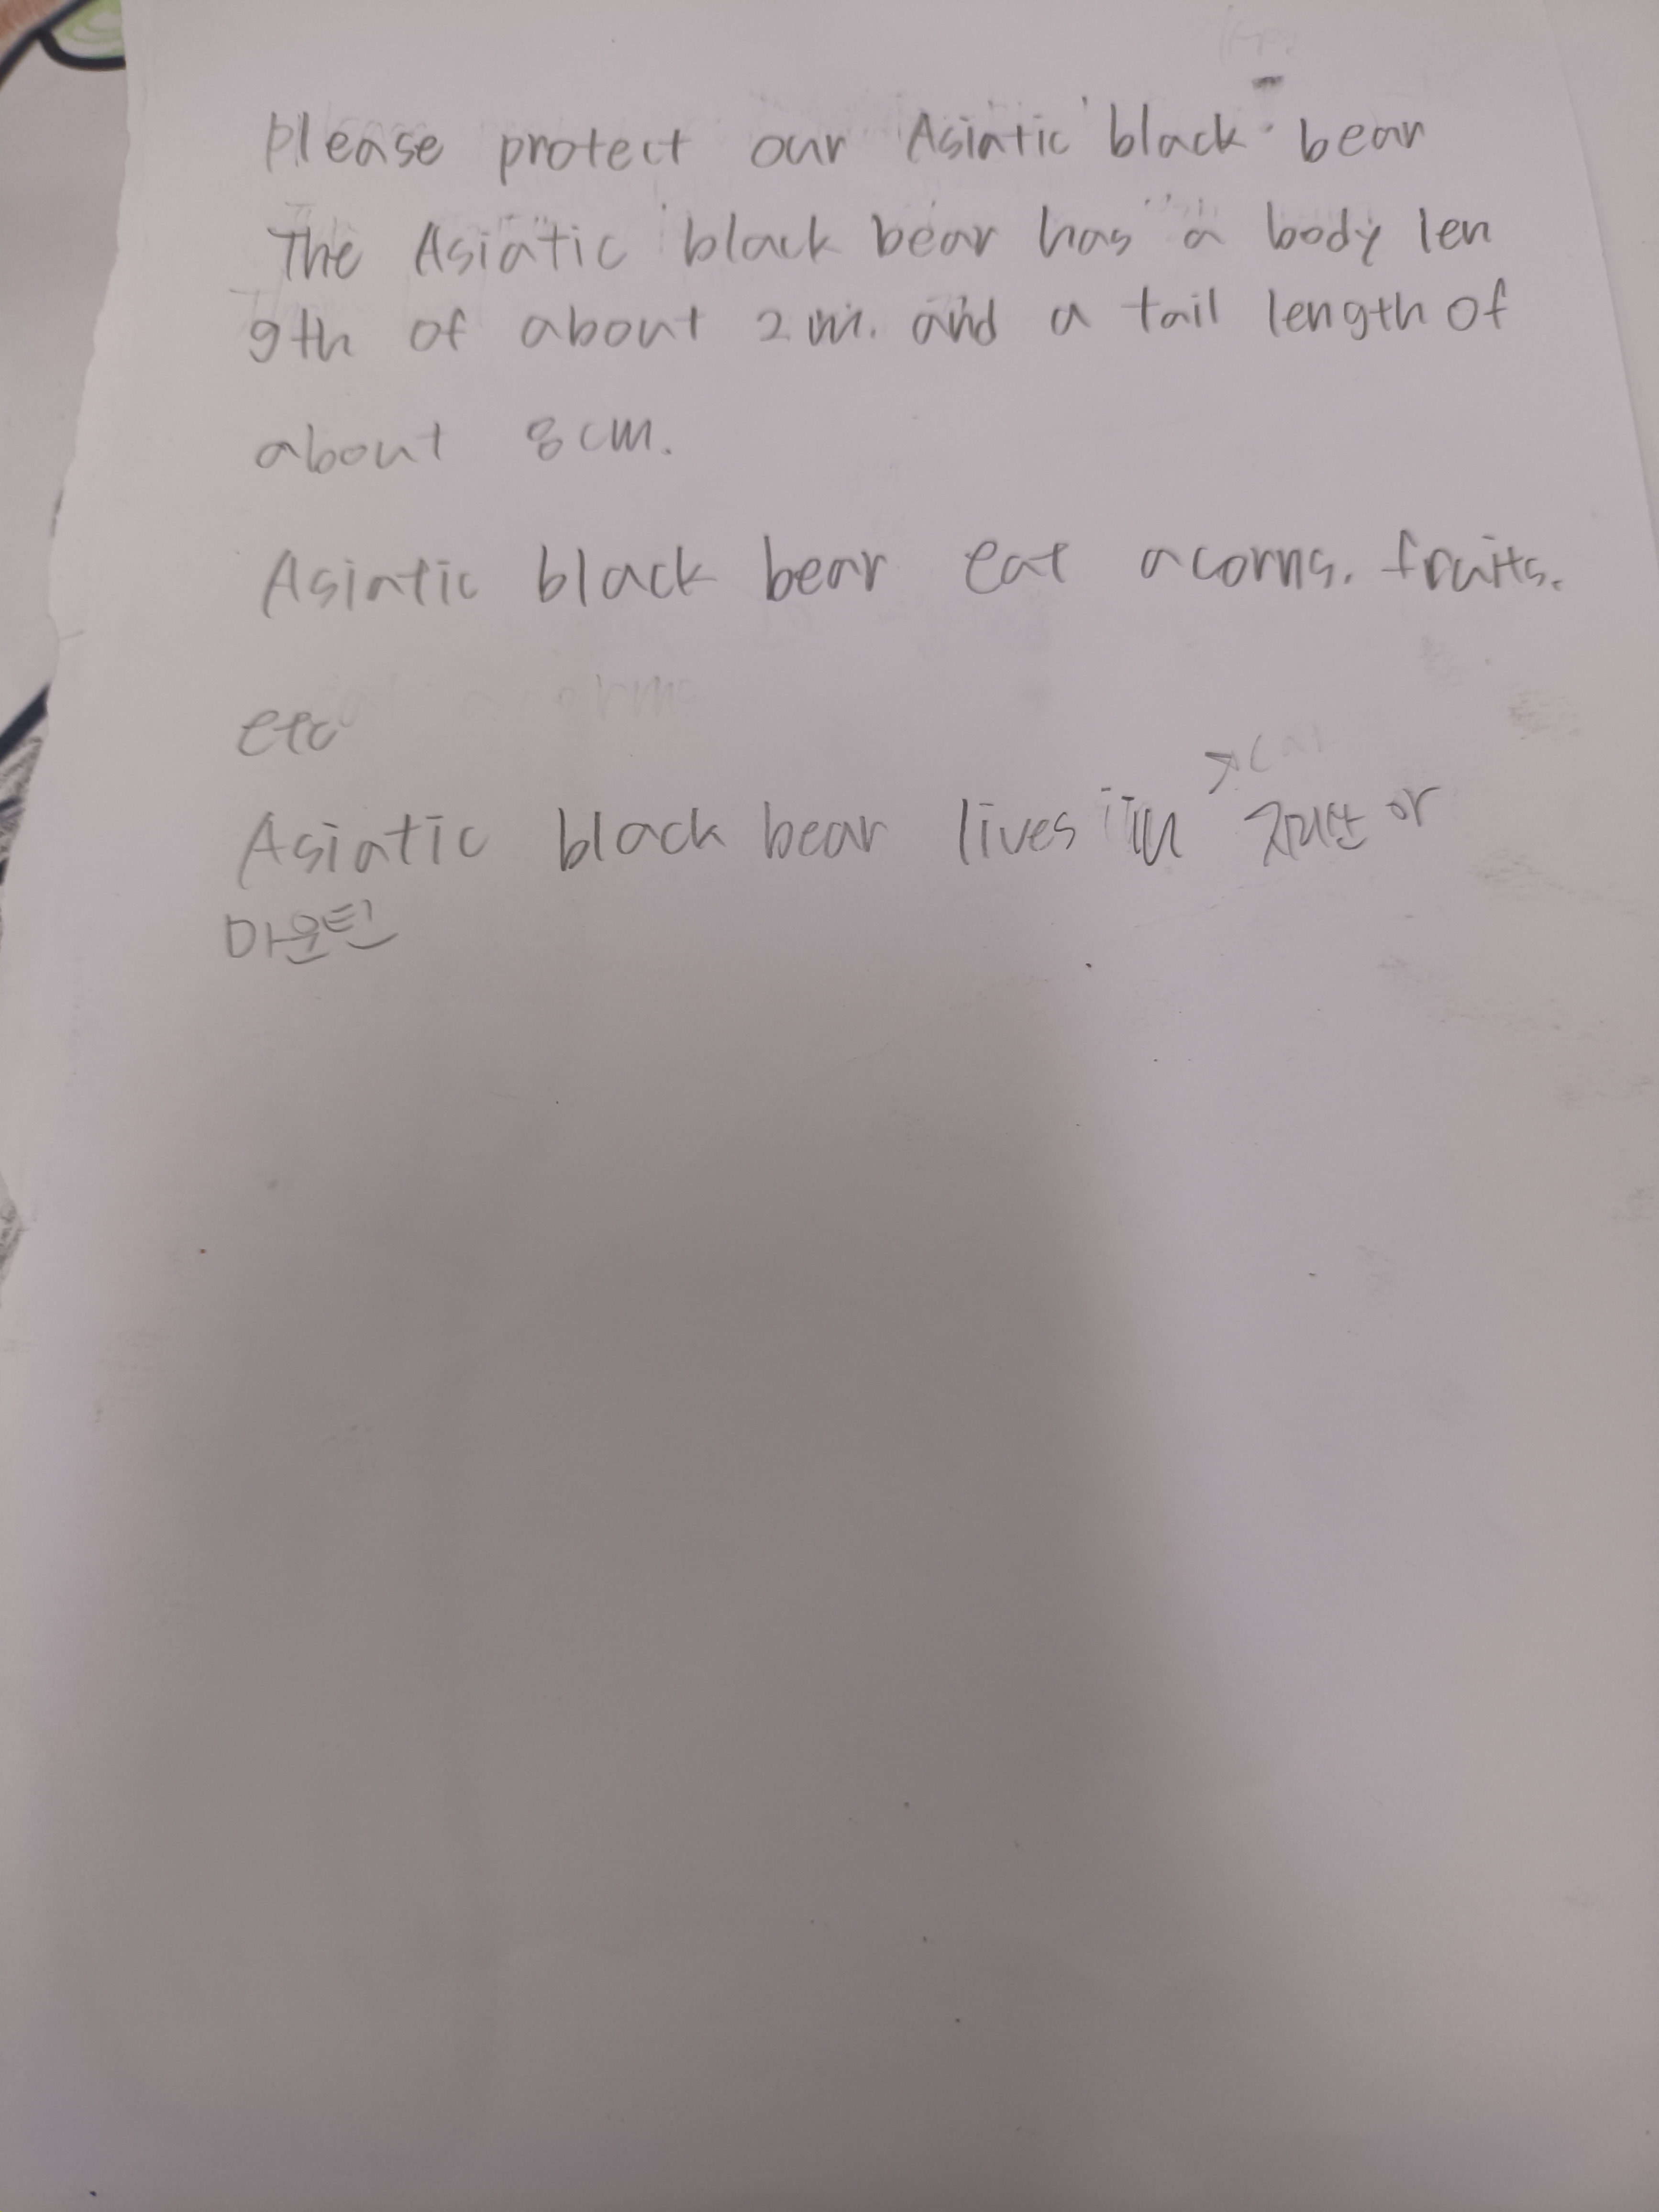 please protect our Asiatic black bear
The Asiatic black bear has a body len
gth of about 2m. and a tail length of
about 8cm.
Asiatic black bear eat acorns. fruits.
etc
Asiatic black bear lives in 지리산 or
마운틴